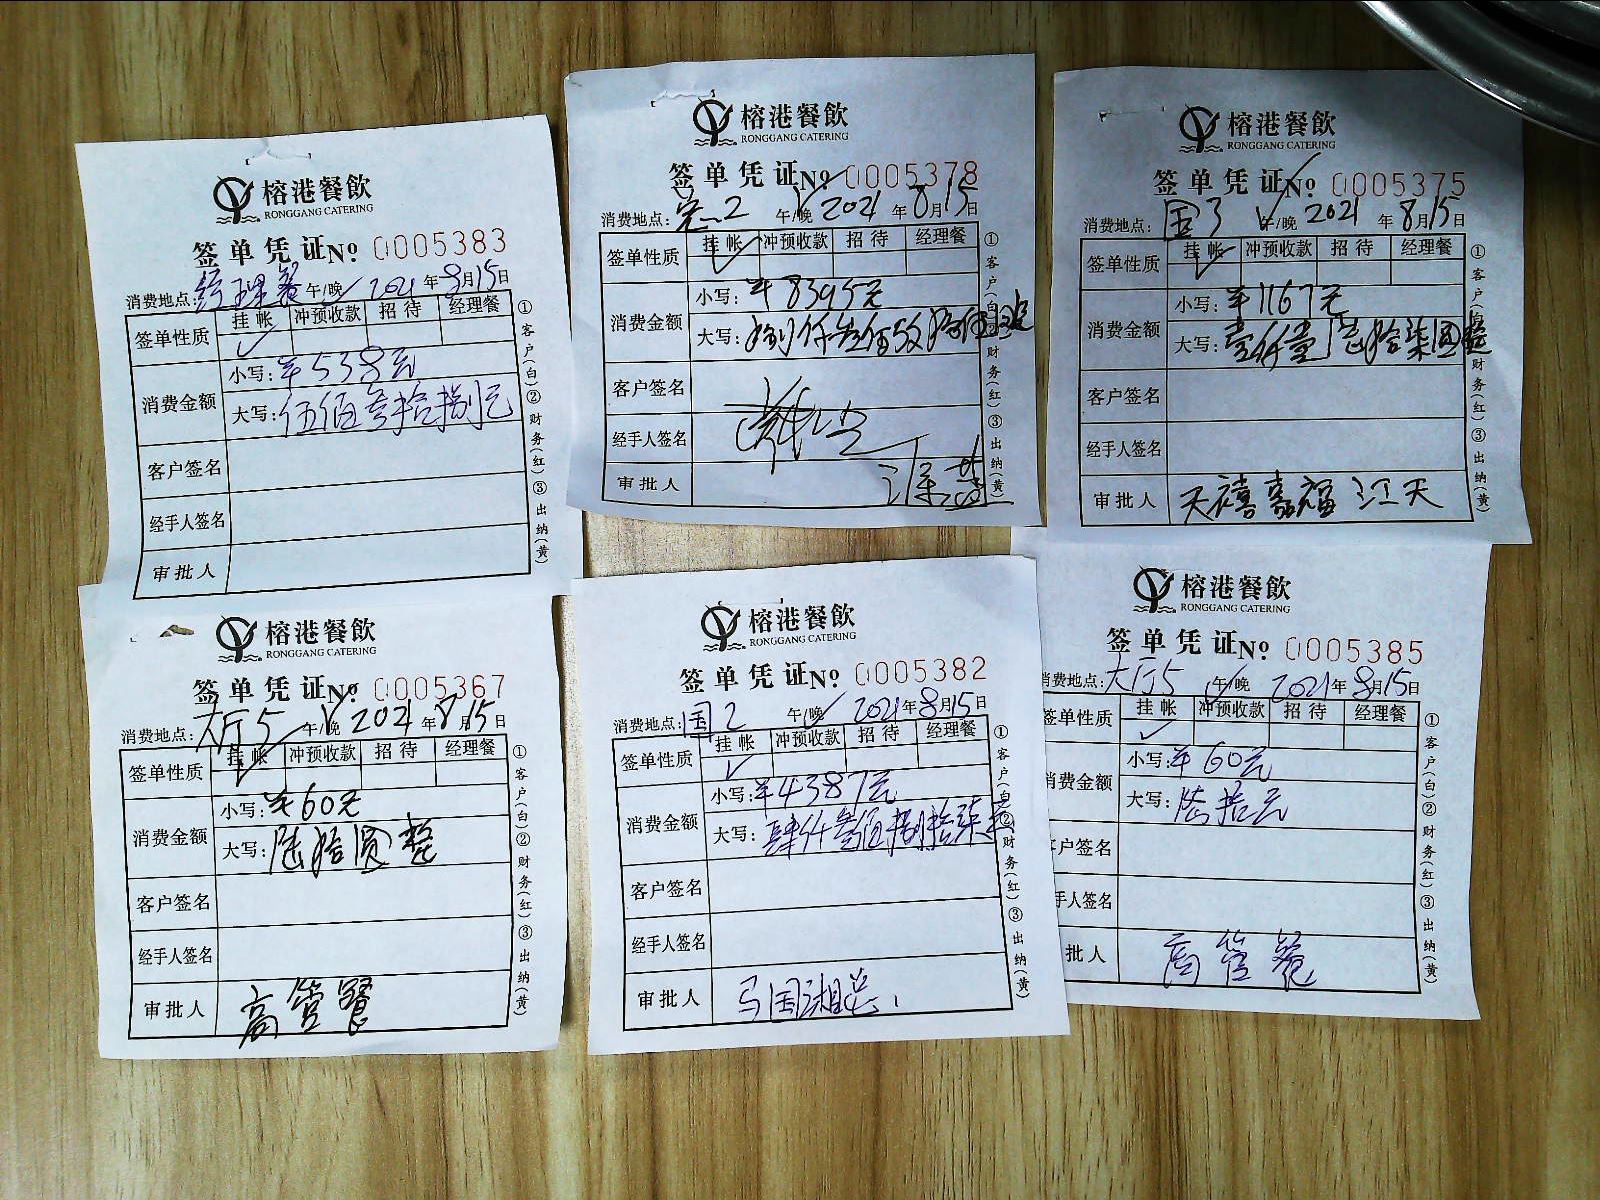 榕港餐飲
RONGGANG CATERING
签单凭证№ 0005383
消费地点: 经理餐 午/晚 2021年8月15日
签单性质 挂帐 冲预收款 招待 经理餐
✓
消费金额 小写: ¥538元
大写: 伍佰叁拾捌元
客户签名
经手人签名
审批人
①客户(白)②财务(红)③出纳(黄)
榕港餐飲
RONGGANG CATERING
签单凭证№ 0005378
消费地点: 2 午/晚 2021年8月15日
签单性质 挂帐 冲预收款 招待 经理餐
✓
消费金额 小写: ¥8395元
大写: 捌仟叁佰玖拾伍圆整
客户签名
经手人签名
审批人
①客户(白)财务(红)③出纳(黄)
榕港餐飲
RONGGANG CATERING
签单凭证№ 0005375
消费地点: 国3 午/晚 2021年8月15日
签单性质 挂帐 冲预收款 招待 经理餐
✓
消费金额 小写: ¥1167元
大写: 壹仟壹佰陆拾柒圆整
客户签名
经手人签名
审批人 天禧嘉福 江天
①客户(白)财务(红)③出纳(黄)
榕港餐飲
RONGGANG CATERING
签单凭证№ 0005367
消费地点: 大厅5 午/晚 2021年8月15日
签单性质 挂帐 冲预收款 招待 经理餐
✓
消费金额 小写: ¥60元
大写: 陆拾圆整
客户签名
经手人签名
审批人 高管餐
①客户(白)②财务(红)③出纳(黄)
榕港餐飲
RONGGANG CATERING
签单凭证№ 0005382
消费地点: 国2 午/晚 2021年8月15日
签单性质 挂帐 冲预收款 招待 经理餐
✓
消费金额 小写: ¥4387元
大写: 肆仟叁佰捌拾柒元
客户签名
经手人签名
审批人 马国湘总
①客户(白)②财务(红)③出纳(黄)
榕港餐飲
RONGGANG CATERING
签单凭证№ 0005385
消费地点: 大厅5 午/晚 2021年8月15日
签单性质 挂帐 冲预收款 招待 经理餐
✓
消费金额 小写: ¥60元
大写: 陆拾元
客户签名
手人签名
批人 高管餐
①客户(白)②财务(红)③出纳(黄)